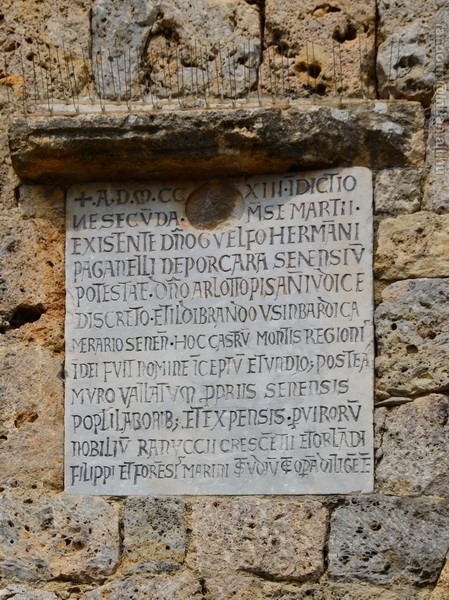 + A. D. M. CC XIII. IDICTIO
NE SECVDA. MSE MARTII.
EXISENTE DNO GVELFO HERMANI
PAGANELLI DE PORCARA SENENSIV
POTESTAE. DNO ARLOTTO PISANI VDICE
DISCRETO. ET ILDIBRANDO VSINBARDI CA
MERARIO SENEN. HOC CASTRV MONTIS REGIONI
I DEI FVIT NOMINE ICEPTV ET VNDIO; POSTEA
MVRO VALLATVM. PPRIIS SENENSIS
POPLI LABORIB; ET EXPENSIS. P VIRORV
NOBILIV RANVCCII CRESCENII ET ORLADI
FILIPPI ET FORESI MARINI